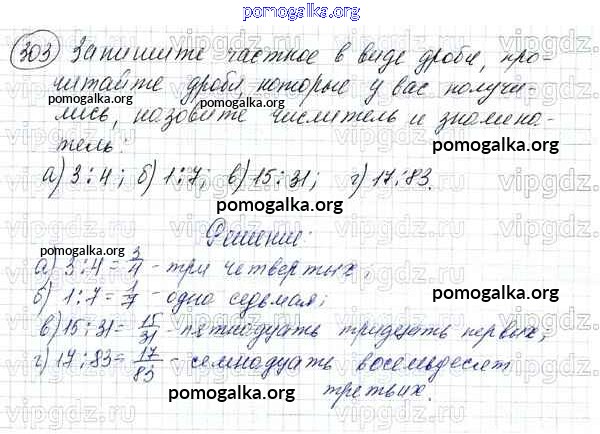 pomogalka.org
303 Запишите частное в виде дроби, про-
читайте дроби, которые у вас получи-
pomogalka.org pomogalka.org
лись, назовите числитель и знамена-
тель: pomogalka.org
а) 3:4; б) 1:7; в) 15:31; г) 17:83.
pomogalka.org
Решение:
pomogalka.org
а) 3:4 = 3/4 - три четвертых;
б) 1:7 = 1/7 - одна седьмая; pomogalka.org
в) 15:31 = 15/31 - пятнадцать тридцать первых;
г) 17:83 = 17/83 - семнадцать восемьдесят
третьих.
pomogalka.org pomogalka.org
vipgdz.com